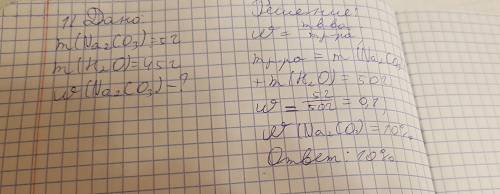 1) Дано:
m(Na₂CO₃)=5г
m(H₂O)=45г
w(Na₂CO₃)-?
Решение:
w = m в-ва / m р-ра
m р-ра = m (Na₂CO₃)
+m(H₂O)=50г
w = 5г/50г = 0,1,
w(Na₂CO₃)=10%
Ответ: 10%